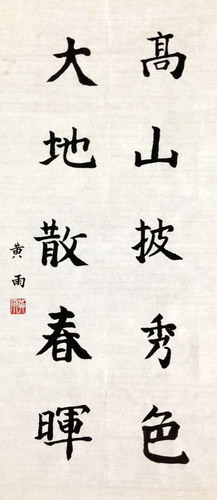 高山披秀色
大地散春暉
黄雨